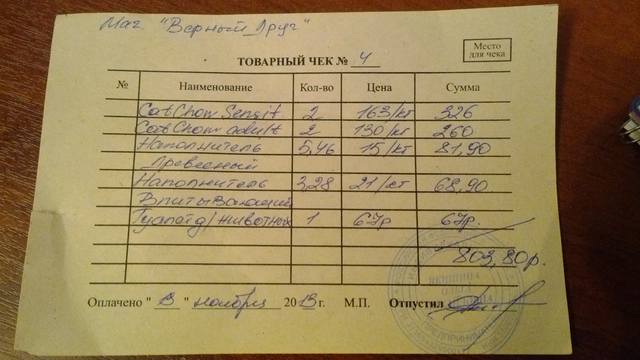 Маг. "Верный Друг"
ТОВАРНЫЙ ЧЕК № 4
Место для чека
№ Наименование Кол-во Цена Сумма
Cat Chow Sensit 2 163/кг 326
Cat Chow adult 2 130/кг 260
Наполнитель 5,46 15/кг 81,90
Древесный
Наполнитель 3,28 21/кг 68,90
Впитывающий
Туалет д/животных 1 67р 67р.
803,80р.
Оплачено " 13 " ноября 2013 г. М.П. Отпустил